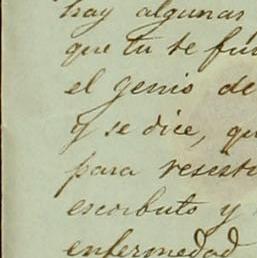 hay algunas
que tu te
el genio de
y se dice, qu
para
escorbuto y
enfermedad